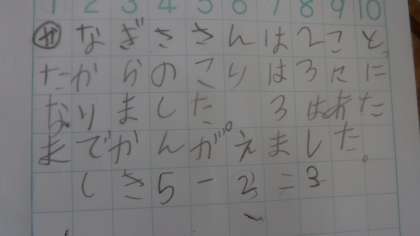 1 2 3 4 5 6 7 8 9 10
か なぎささんは2こと
たからのこりは3こに
なりました。3はあた
までかんがえました。
しき5-2=3